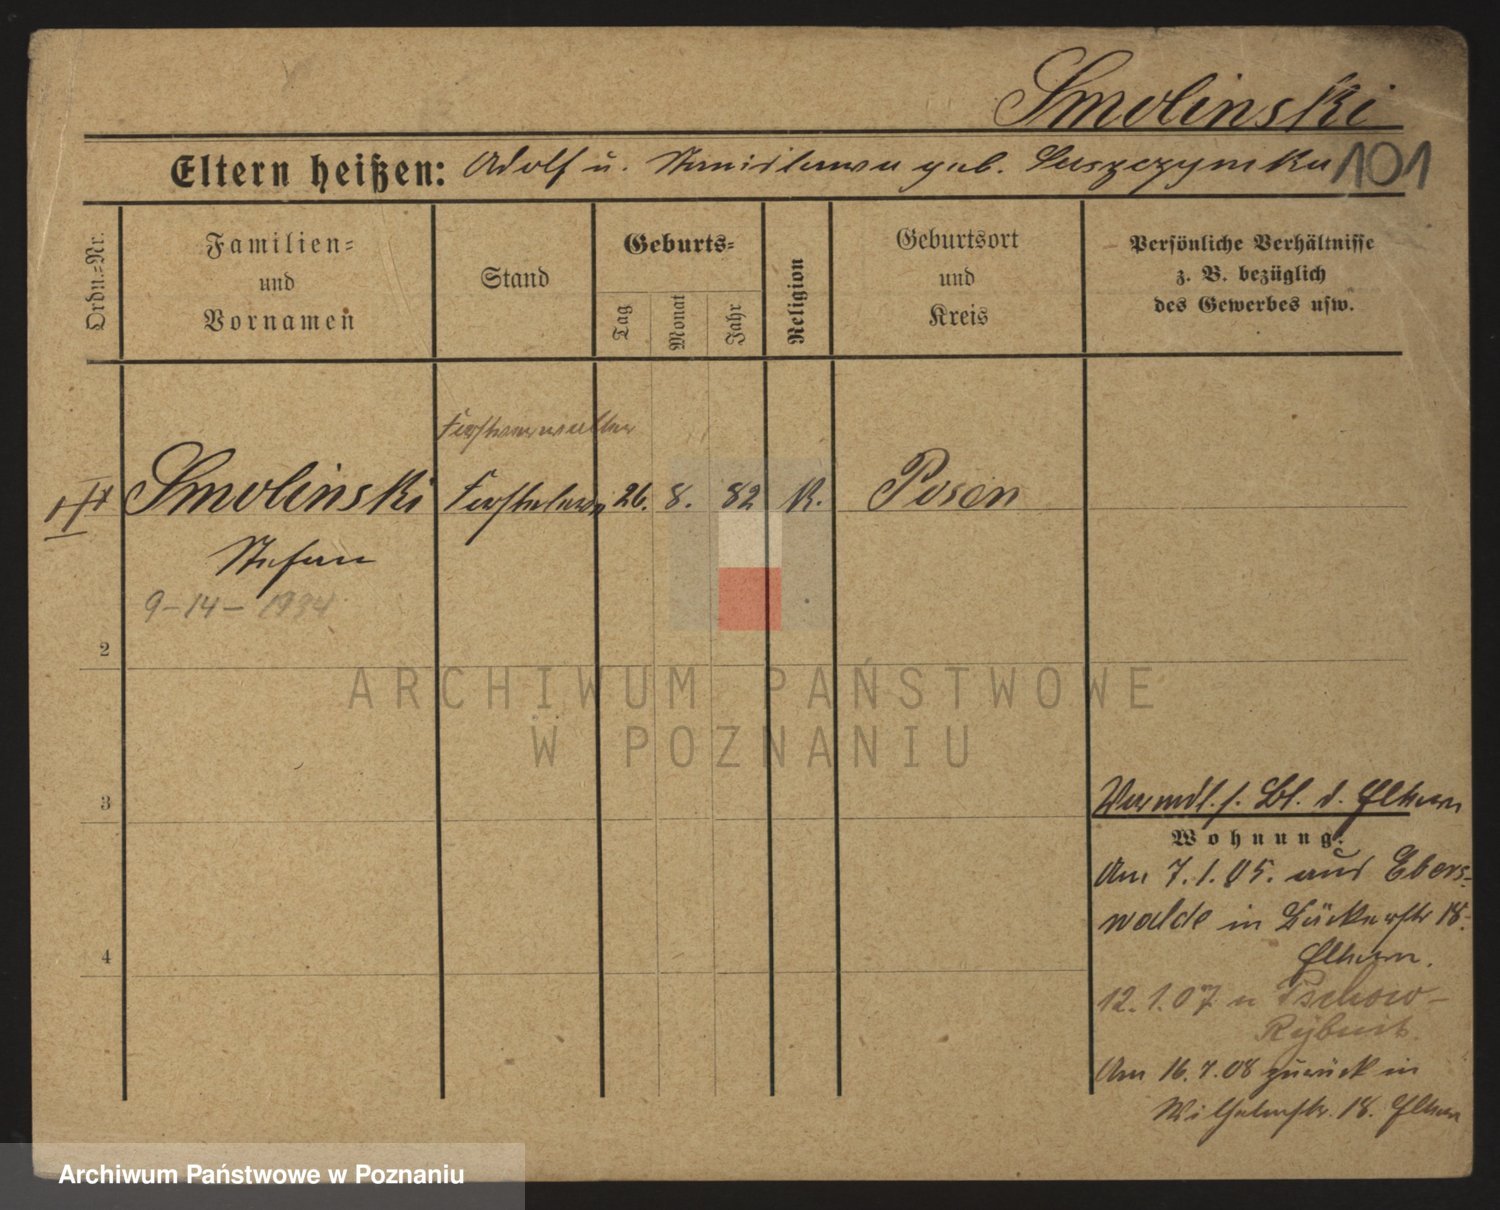 Smolinski
Eltern heißen: Adolf u. Stanislawa geb. Laszczynska 101
Ordn.=Nr.
Familien=
und
Vornamen
Stand
Geburts=
Tag
Monat
Jahr
Religion
Geburtsort
und
Kreis
Persönliche Verhältnisse
z. B. bezüglich
des Gewerbes usw.
Forstverwalter
Smolinski Forsteleve 26. 8. 82 K. Posen
Stefan
9-14-1934
2
ARCHIWUM PAŃSTWOWE
W POZNANIU
3
4
Verwdl. s. Bl. d. Eltern
Wohnung:
Am 7.1.05. aus Ebers-
walde in Bäckerstr 18.
Eltern.
12.1.07 n Pschow-
Rybnik.
Am 16.7.08 zurück in
Wilhelmstr. 18. Eltern
Archiwum Państwowe w Poznaniu